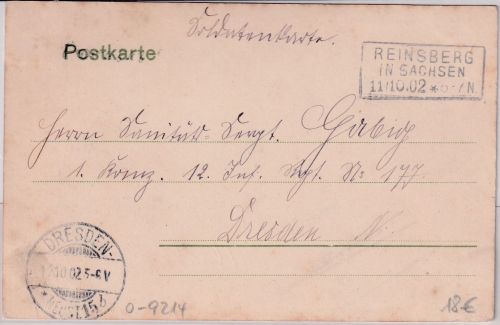 Soldatenkarte.
Postkarte
REINSBERG
IN SACHSEN
11/10.02 * 6-7 N.
Herrn Sanitäts-Sergt. Gäbig
1. Komp. 12. Inf. Rgt. No 177.
Dresden N.
DRESDEN-
10 02 5-6 V
* NEUST. 15 b
0-9214
18.€